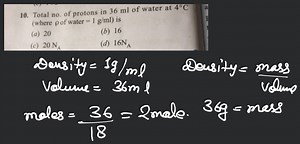 10. Total no. of protons in 36 ml of water at 4°C
(where ρ of water = 1 g/ml) is
(a) 20 (b) 16
(c) 20 N_A (d) 16N_A
Density = 1g/ml Density = mass/Volume
Volume = 36ml
moles = 36/18 = 2mole. 36g = mass